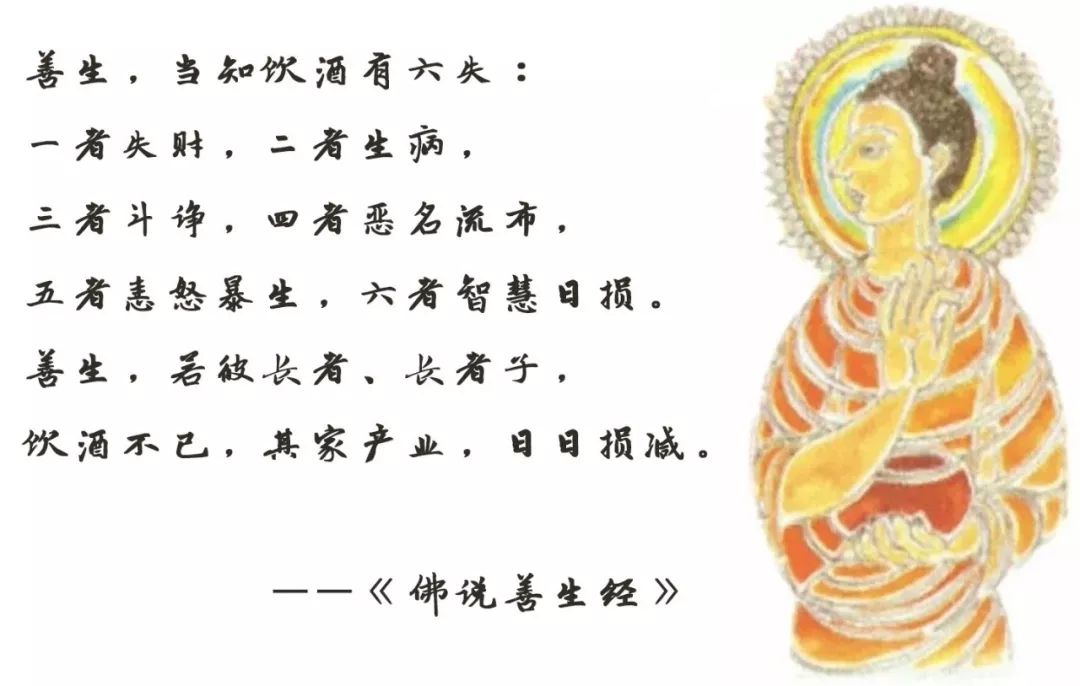 善生，当知饮酒有六失：
一者失财，二者生病，
三者斗诤，四者恶名流布，
五者恚怒暴生，六者智慧日损。
善生，若彼长者、长者子，
饮酒不已，其家产业，日日损减。
——《佛说善生经》